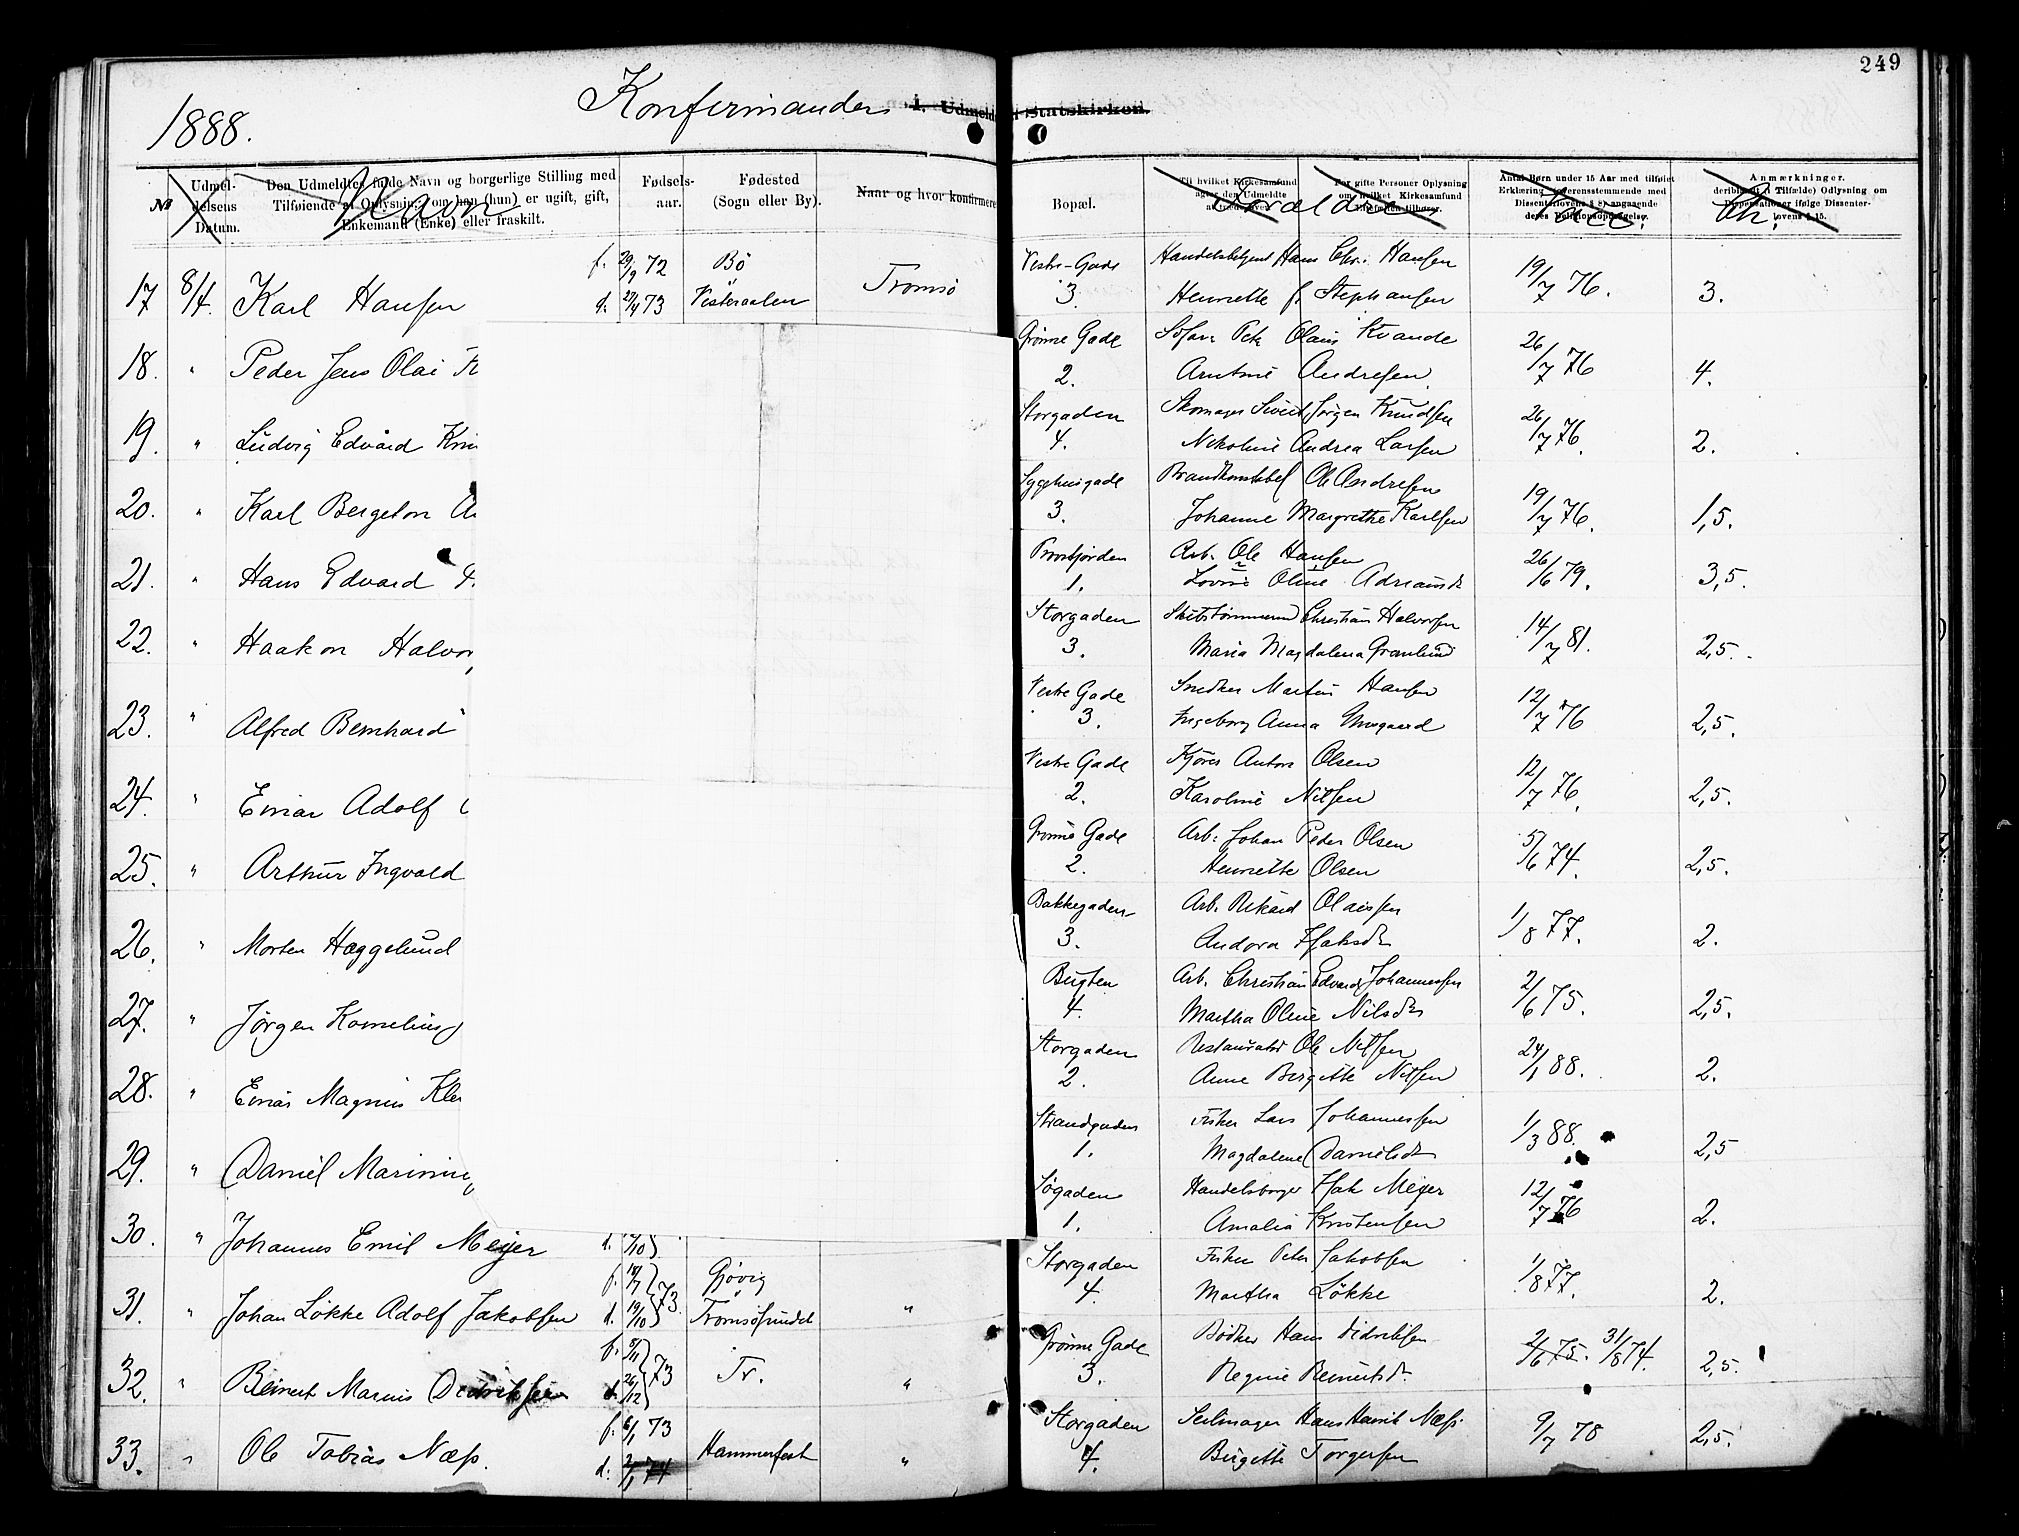 249
1888.
Konfirmander
i. Udmeld
Statskirken.
№
Udmel-
delsens
Datum.
Den Udmeldtes fulde Navn og borgerlige Stilling med
Tilføiende af Oplysning, om han (hun) er ugift, gift,
Enkemand (Enke) eller fraskilt.
Navn
Fødsels-
aar.
Fødested
(Sogn eller By).
Naar og hvor konfirmere
Bopæl.
Til hvilket Kirkesamfund
agter den Udmeldte
at
For gifte Personer Oplysning
om, hvilket Kirkesamfund
tilhører.
Forældre
Antal Børn under 15 Aar med tilføiet
Erklæring overensstemmende med
Dissenterlovens § 8) angaaende
deres Religionsopdragelse.
Vacc.
Anmærkninger,
deriblandt (i Tilfælde) Oplysning om
Dispensationer ifølge Dissenter-
lovens § 15.
17 8/4. Karl Hansen f. 29/9 72 d. 27/4 73 Bø Vesteraalen Tromsø Vestre-Gade 3. Handelsbetjent Hans Chr. Hansen Henriette f. Stephansen 19/7 76. 3.
18. " Peder Jens Olai Grønne Gade 2. Olaus Kvande Andresen 26/7 76 4.
19. " Ludvig Edvard Storgaden 4. Skomager Jørgen Knudsen Nikoline Andrea Larsen 26/7 76. 2.
20. " Karl Bergeton Sygehusgade 3. Brandkonstabel Ole Andresen Johanne Margrethe Karlsen 19/7 76. 1,5.
21. " Hans Edvard 1. Arb. Ole Hansen Oline 26/6 79. 3,5.
22. " Haakon Halvor Storgaden 3. Skibstømmermand Christian Halvorsen Maria Magdalena Grønlund 14/7 81. 2,5.
23. " Alfred Bernhard Vestre Gade 3. Snedker Martin Hansen Ingeborg Anna 12/7 76 2,5.
24. " Einar Adolf Vestre Gade 2. Kjører Anton Olsen Karoline Nilsen 12/7 76. 2,5.
25. " Arthur Ingvald Grønne Gade 2. Arb. Johan Peder Olsen Henriette Olsen 5/6 74. 2,5.
26. " Morten Hæggelund Bakkegaden 3. Arb. Rikard Olaissen Andora Isaksdr 1/8 77. 2.
27. " Jørgen Kornelius Bugten 4. Arb. Christian Edvard Johannessen Martha Oline Nilsdr 2/6 75. 2,5.
28. " Einar Magnus Storgaden 2. Restauratør Ole Nilsen Anne Birgitte Nilsen 24/1 88. 2.
29. " Daniel Marinius Strandgaden 1. Fisker Lars Johannessen Magdalene Danielsdr 1/3 88. 2,5
30. " Johannes Emil Meyer d. /10 Søgaden 1. Handelsborger Isak Meyer Amalia Kristensen 12/7 76 2.
31. " Johan Løkke Adolf Jakobsen f. 18/7 d. 19/10 73 Gjøvig Tromsøsundet " Storgaden 4. Fisker Peter Jakobsen Martha Løkke 1/8 77. 2.
32. " Beinert Marius Didriksen f. 8/11 d. 26/12 73 Tr. " Grønne Gade 3. Bødker Hans Didriksen Regine Beinertsdr. 2/6 75. 31/8 74. 2,5.
33. " Ole Tobias Næss. f. 6/1 73 d: 2/1 74 Hammerfest " Storgaden 4. Seilmager Hans Henrik Næss. Birgitte Torgersen 9/7 78 2,5.